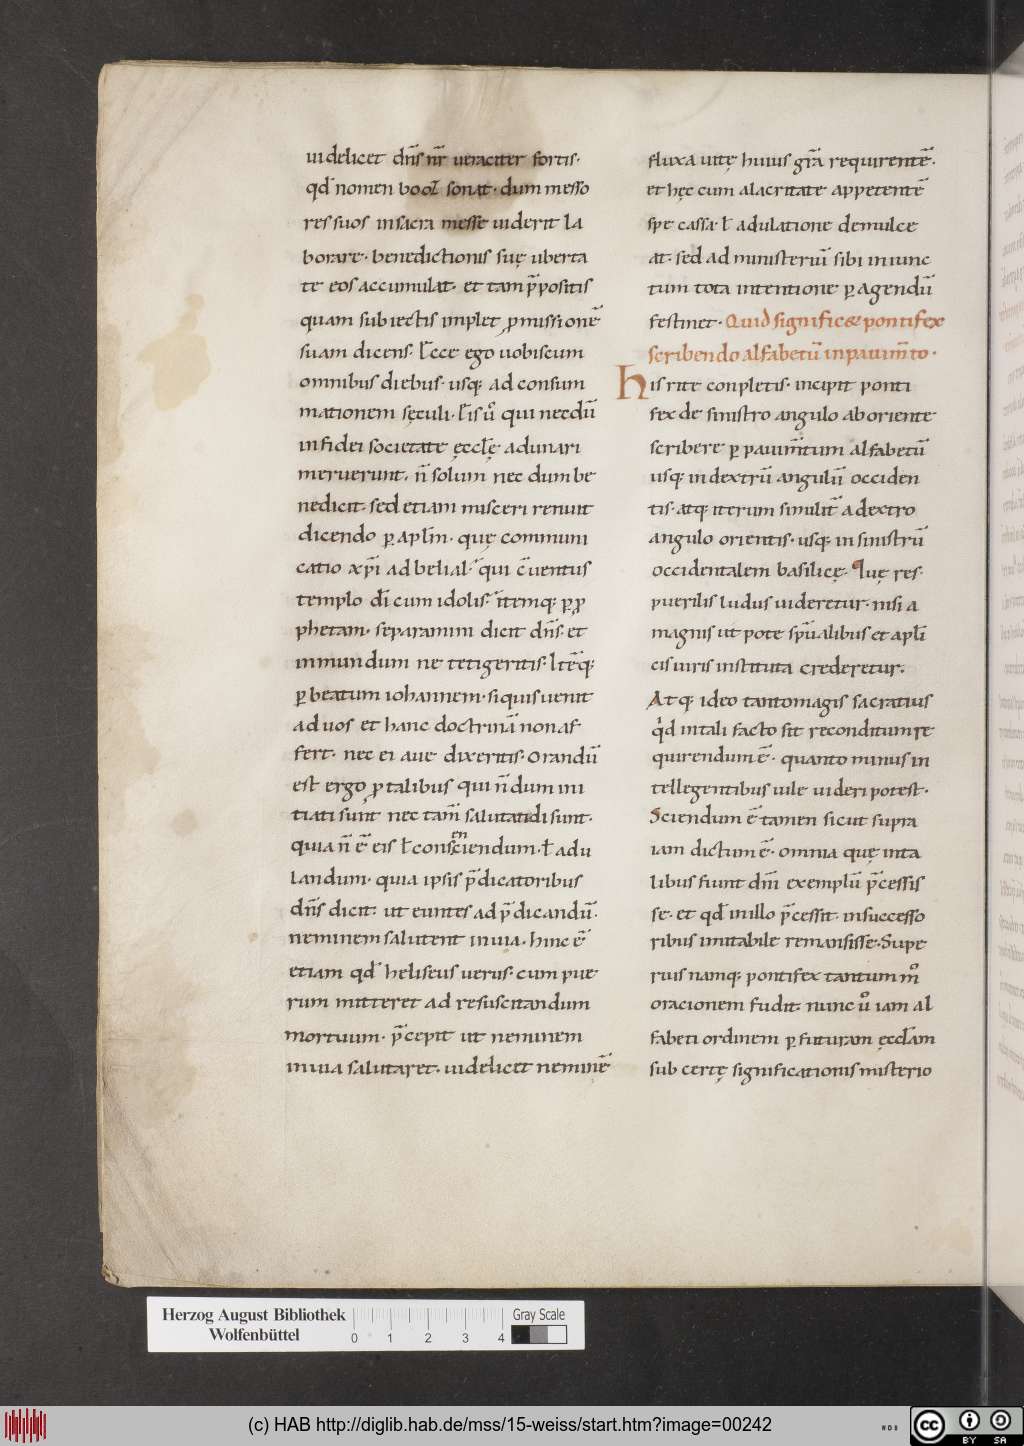 uidelicet dn̅s nr̅ ueraciter fortis·
qd̅ nomen booz sonat· dum messo
res suos insacra messe uiderit la
borare· benedictionis suę uberta
te eos accumulat· et tam p̅positis
quam subiectis implet ꝓmissionē
suam dicens· Ecce ego uobiscum
omnibus diebus· usq; ad consum
mationem sęculi· Eis ů qui necdū
infidei societate ęccl̅ę adunari
meruerunt· n̅ solum nec dum be
nedicit· sed etiam misceri renuit
dicendo ꝑ apl̅m· quę communi
catio xp̅i ad belial· qui c̅uentus
templo di̅ cum idolis· Itemq; ꝑ ꝓ
phetam· separamini dicit dn̅s· et
inmundum ne tetigeritis· Itēq;
ꝑ beatum iohannem· siquis uenit
ad uos et hanc doctrinā non af
fert· nec ei aue dixeritis· Orandū
est ergo ꝓ talibus qui n̅dum ini
tiati sunt nec tam̅ salutandi sunt·
quia n̅ ē eis ł consenciendum· ł adu
landum· quia ipsis p̅dicatoribus
dn̅s dicit· ut euntes ad p̅dicandū·
neminem salutent inuia· hinc ē
etiam qd̅ heliseus uerus· cum pue
rum mitteret ad resuscitandum
mortuum· p̅cepit ut neminem
inuia salutaret· uidelicet neminē
fluxa uitę huius gr̅a requirentē·
et hęc cum alacritate appetentē
spe cassa· ł adulatione demulce
at· sed ad ministeriū sibi iniunc
tum tota intentione ꝑagendū
festinet· Quid significet pontifex
scribendo alfabetū inpauim̅to·
His rite conpletis· incipit ponti
fex de sinistro angulo ab oriente
scribere ꝑ pauim̅tum alfabetū
usq; in dextrū angulū occiden
tis· atq; iterum similit̅ a dextro
angulo orientis· usq; in sinistrū
occidentalem basilicę· Quę res·
puerilis ludus uideretur· nisi a
magnis ut pote spū̅alibus et apl̅i
cis uiris instituta crederetur·
Atq; ideo tanto magis sacratius
qd̅ in tali facto sit reconditum re
quirendum ē· quanto minus in
tellegentibus uile uideri potest·
Sciendum ē tamen sicut supra
iam dictum ē· omnia quę in ta
libus fiunt dn̅i exemplū p̅cessis
se· et qd̅ in illo p̅cessit· in successo
ribus imitabile remansisse· Supe
rius namq; pontifex tantum m̊
oracionem fudit· nunc ů iam al
fabeti ordinem ꝑ futuram ęccl̅am
sub certę significationis misterio
Herzog August Bibliothek
Wolfenbüttel
0 1 2 3 4
Gray Scale
(c) HAB http://diglib.hab.de/mss/15-weiss/start.htm?image=00242
WDB
cc BY SA